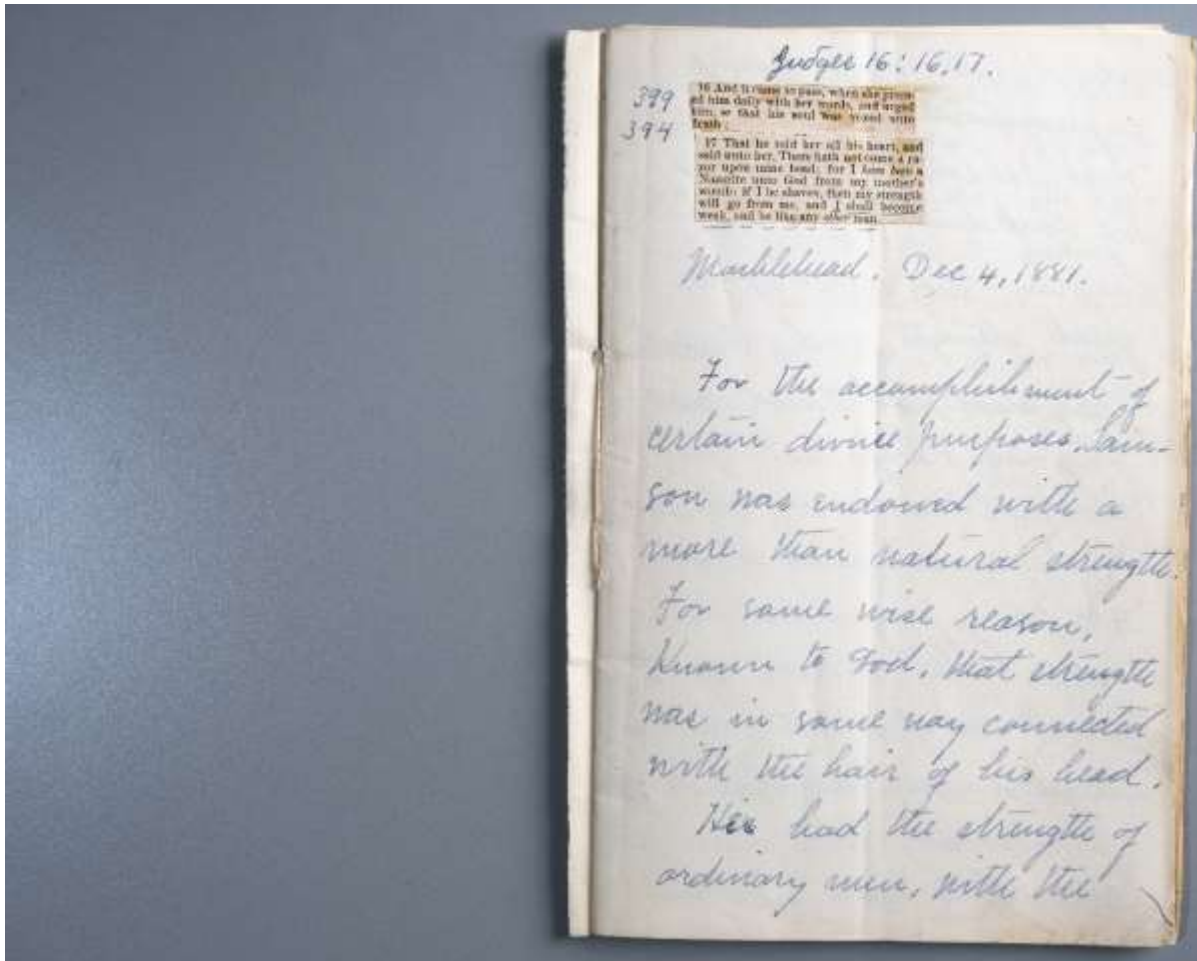 Judges 16: 16, 17.
399
394
16 And it came to pass, when she press-
ed him daily with her words, and urged
him, so that his soul was vexed unto
death;
17 That he told her all his heart, and
said unto her, There hath not come a ra-
zor upon mine head; for I have been a
Nazarite unto God from my mother's
womb: if I be shaven, then my strength
will go from me, and I shall become
weak, and be like any other man.
Marblehead. Dec 4, 1881.
For the accomplishment of
certain divine purposes, Sam-
son was endowed with a
more than natural strength.
For some wise reason,
known to God, that strength
was in some way connected
with the hair of his head.
He had the strength of
ordinary men, with the